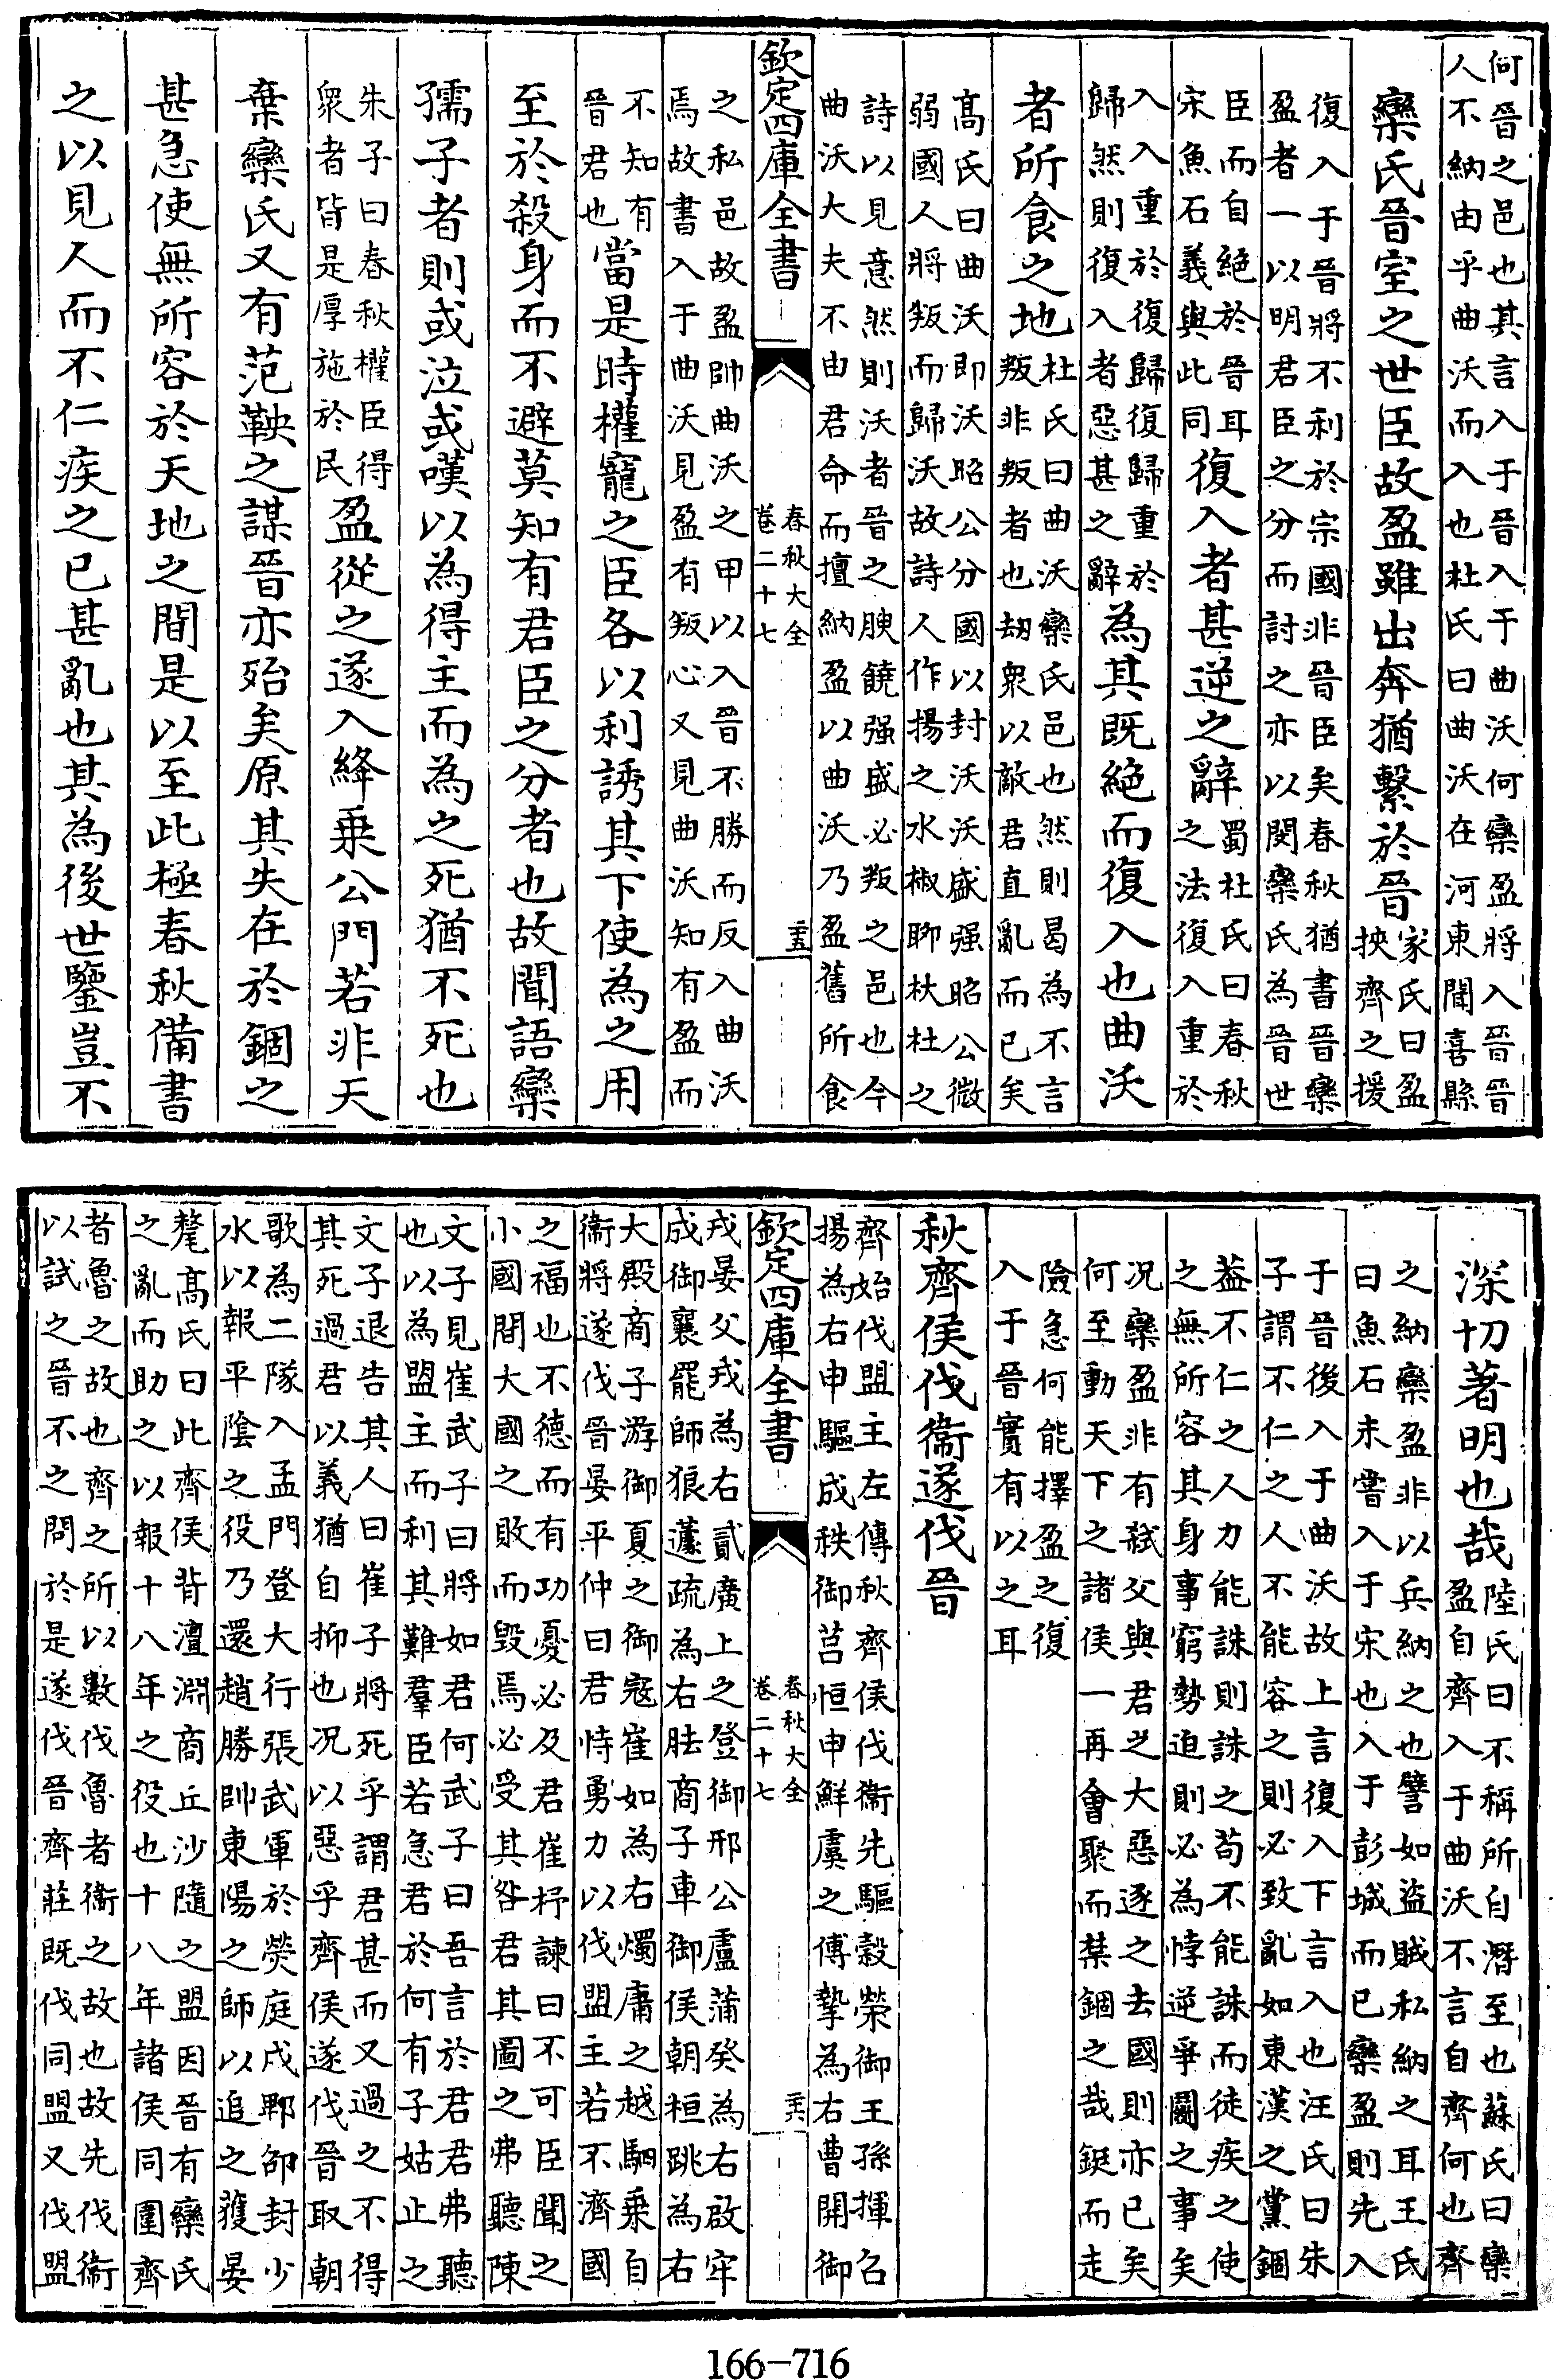 何晉之邑也其言入于晉入于曲沃何欒盈將入晉晉
人不納由乎曲沃而入也杜氏曰曲沃在河東聞喜縣
欒氏晉室之世臣故盈雖出奔猶繫於晉家氏曰盈
挾齊之援
復入于晉將不利於宗國非晉臣矣春秋猶書晉欒
盈者一以明君臣之分而討之亦以閔欒氏為晉世
臣而自絕於晉耳
宋魚石義與此同復入者甚逆之辭蜀杜氏曰春秋
之法復入重於
入入重於復歸復歸重於
歸然則復入者惡甚之辭為其既絕而復入也曲沃
者所食之地杜氏曰曲沃欒氏邑也然則曷為不言
叛非叛者也劫衆以敵君直亂而已矣
髙氏曰曲沃即沃昭公分國以封沃沃盛强昭公微
弱國人將叛而歸沃故詩人作揚之水椒聊杕杜之
詩以見意然則沃者晉之腴饒强盛必叛之邑也今
曲沃大夫不由君命而擅納盈以曲沃乃盈舊所食
欽定四庫全書
春秋大全
卷二十七
二十五
之私邑故盈帥曲沃之甲以入晉不勝而反入曲沃
焉故書入于曲沃見盈有叛心又見曲沃知有盈而
不知有
晉君也當是時權寵之臣各以利誘其下使為之用
至於殺身而不避莫知有君臣之分者也故聞語欒
孺子者則或泣或嘆以為得主而為之死猶不死也
朱子曰春秋權臣得
衆者皆是厚施於民盈從之遂入絳乗公門若非天
棄欒氏又有范鞅之謀晉亦殆矣原其失在於錮之
甚急使無所容於天地之間是以至此極春秋備書
之以見人而不仁疾之已甚亂也其為後世鑒豈不
深切著明也哉陸氏曰不稱所自潛至也蘇氏曰欒
盈自齊入于曲沃不言自齊何也齊
之納欒盈非以兵納之也譬如盜賊私納之耳王氏
曰魚石未嘗入于宋也入于彭城而已欒盈則先入
于晉後入于曲沃故上言復入下言入也汪氏曰朱
子謂不仁之人不能容之則必致亂如東漢之黨錮
葢不仁之人力能誅則誅之苟不能誅而徒疾之使
之無所容其身事窮勢迫則必為悖逆爭鬭之事矣
况欒盈非有弒父與君之大惡逐之去國則亦已矣
何至動天下之諸侯一再會聚而禁錮之哉鋌而走
險急何能擇盈之復
入于晉實有以之耳
秋齊侯伐衞遂伐晉
齊始伐盟主左傳秋齊侯伐衞先驅榖榮御王孫揮召
揚為右申驅成秩御莒恒申鮮虞之傅摯為右曹開御
戎晏父戎為右貳廣上之登御邢公盧蒲癸為右啟牢
成御襄罷師狼蘧疏為右胠商子車御侯朝桓跳為右
大殿商子游御夏之御寇崔如為右燭庸之越駟乗自
衞將遂伐晉晏平仲曰君恃勇力以伐盟主若不濟國
之福也不德而有功憂必及君崔杼諫曰不可臣聞之
小國間大國之敗而毀焉必受其咎君其圖之弗聽陳
文子見崔武子曰將如君何武子曰吾言於君君弗聽
也以為盟主而利其難羣臣若急君於何有子姑止之
文子退告其人曰崔子將死乎謂君甚而又過之不得
其死過君以義猶自抑也况以惡乎齊侯遂伐晉取朝
歌為二隊入孟門登大行張武軍於熒庭戍郫邵封少
水以報平隂之役乃還趙勝帥東陽之師以追之獲晏
氂髙氏曰此齊侯背澶淵商丘沙隨之盟因晉有欒氏
之亂而助之以報十八年之役也十八年諸侯同圍齊
者魯之故也齊之所以數伐魯者衞之故也故先伐衞
以試之晉不之問於是遂伐晉齊莊既伐同盟又伐盟
欽定四庫全書
春秋大全
卷二十七
二十六
166-716